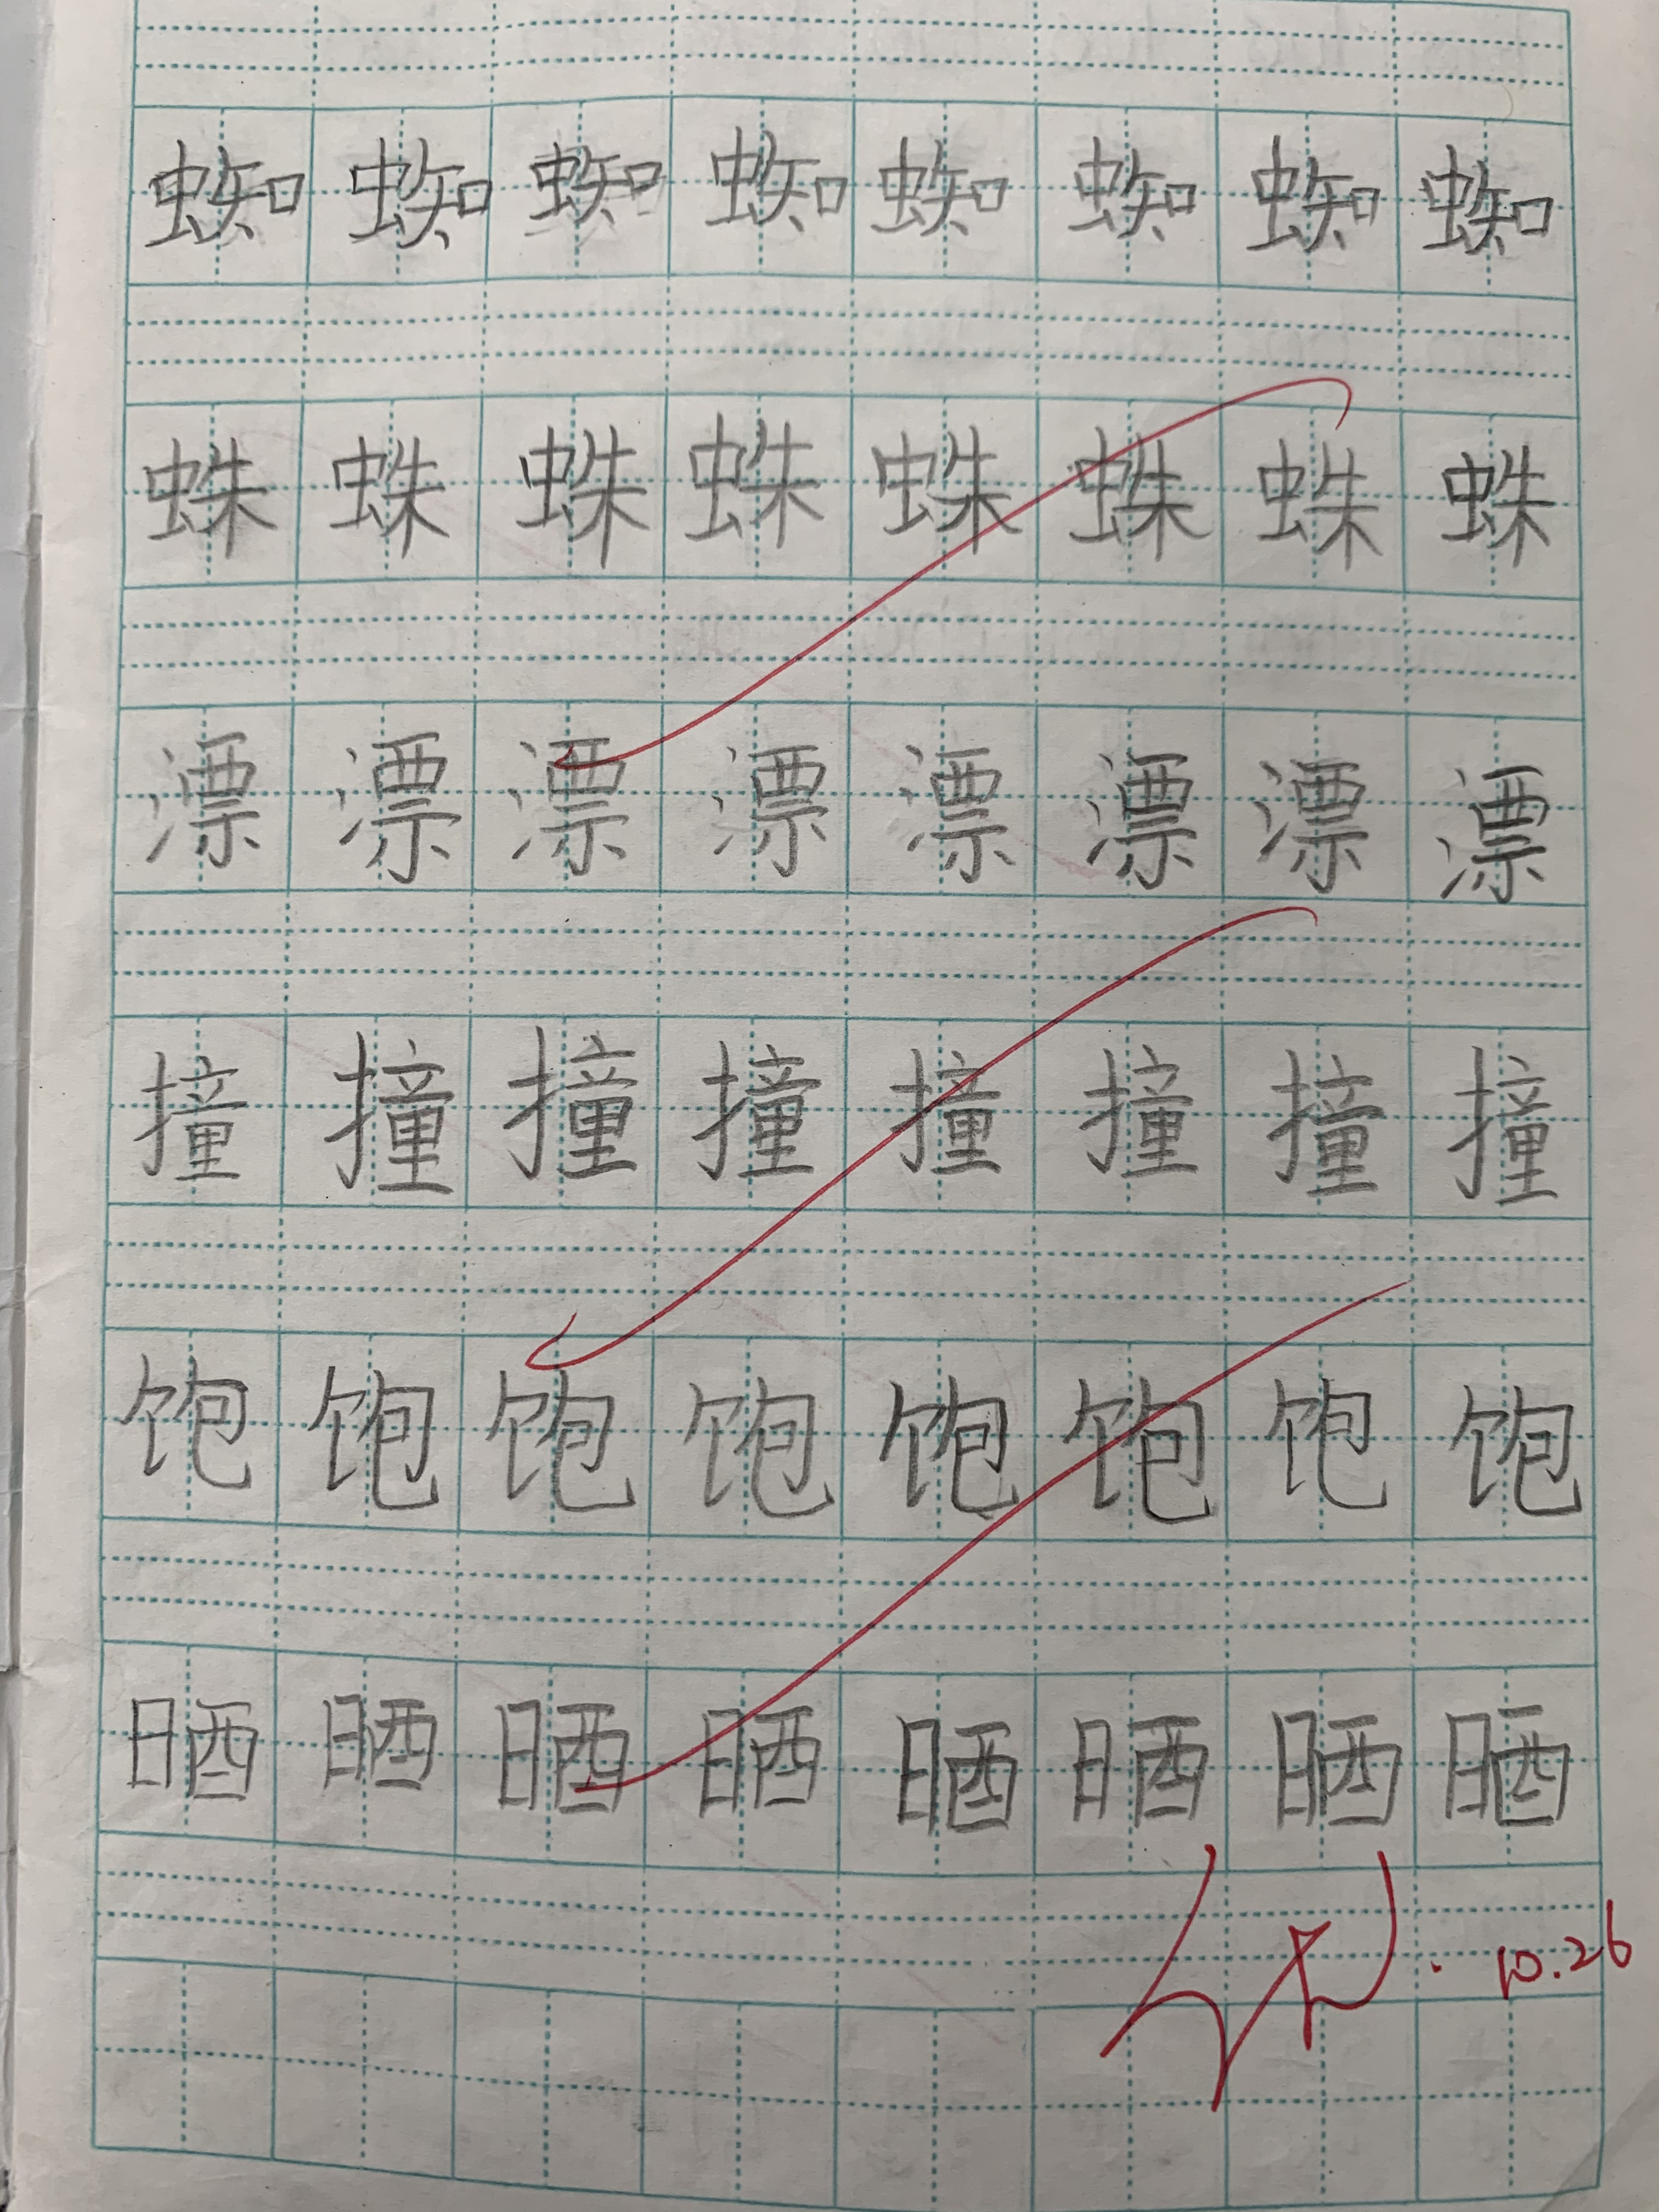 蜘蜘蜘蜘蜘蜘蜘蜘
蛛蛛蛛蛛蛛蛛蛛蛛
漂漂漂漂漂漂漂漂
撞撞撞撞撞撞撞撞
饱饱饱饱饱饱饱饱
晒晒晒晒晒晒晒晒
10.26